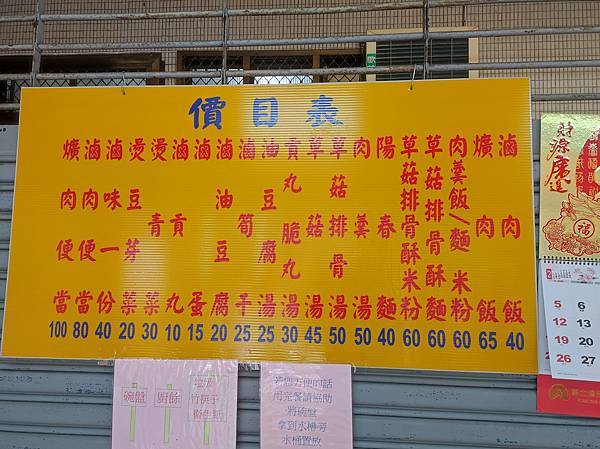 價目表
滷肉飯 40
爌肉飯 65
肉羹飯/麵米粉 60
草菇排骨酥麵 60
草菇排骨酥米粉 60
陽春麵 40
肉羹湯 50
草菇排骨湯 50
草菇湯 45
貢丸脆丸湯 30
油豆腐湯 25
滷筍干 25
滷油豆腐 20
滷蛋 15
滷貢丸 10
燙青菜 30
燙豆芽菜 20
滷味一份 40
滷肉便當 80
爌肉便當 100
碗盤
廚餘
垃圾
竹筷子
衛生紙
若您方便的話
用完餐請協助
將碗盤
拿到水槽旁
水桶置放
財源廣進
福
2
5 6
12 13
19 20
26 27